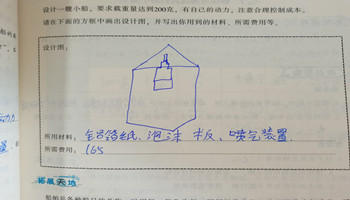 设计一艘小船。要求载重量达到200克,有自己的动力,注意合理控制成本。
请在下面的方框中画出设计图,并写出你用到的材料、所需费用等。
设计图:
所用材料: 铝箔纸、泡沫板、喷气装置.
所需费用: 165
拓展天地